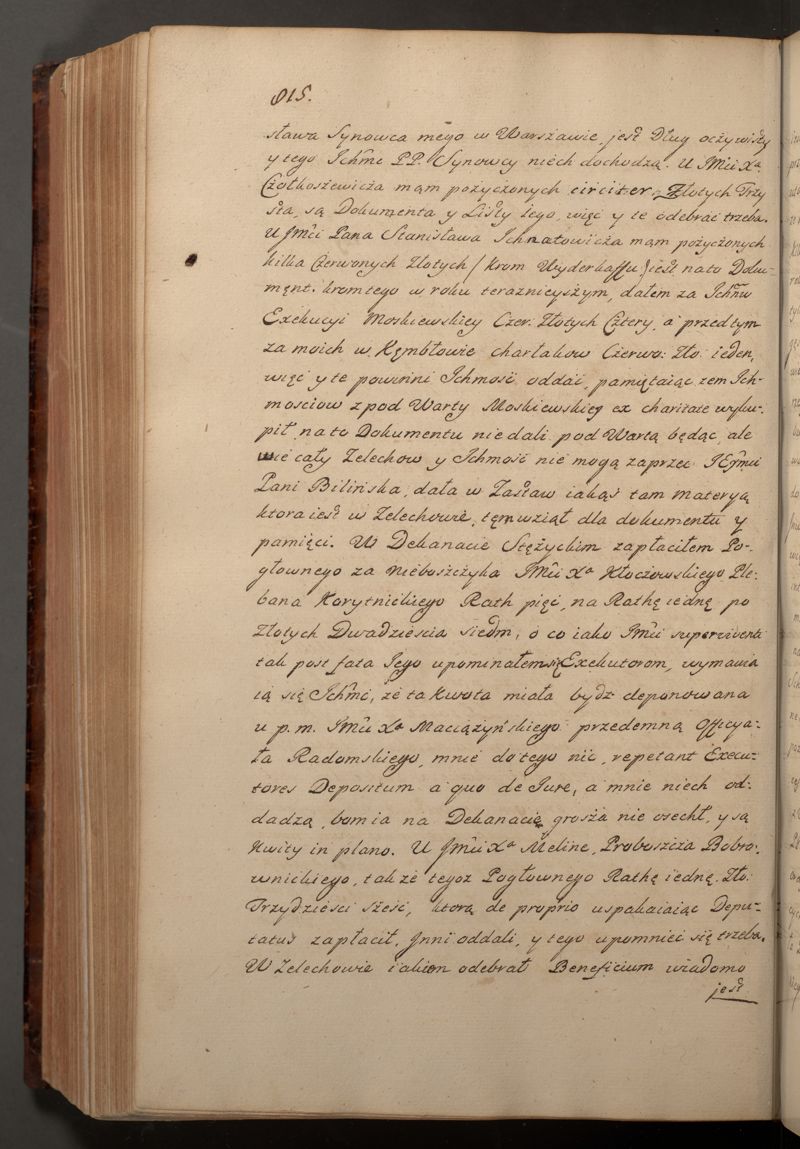 815.
sława Synowca mego w Warszawie, jest Dług oczywisty
y tego Ichmć PP. Synowcy niech dochodzą. U Jmci Xa
Czołkoszewicza mam pożyczonych circiter Złotych Trzy
sta, są Dokumenta y Listy Jego, więc y te odebrac trzeba.
U Jmci Pana Stanisława Ichnatowicza mam pożyczonych
kilka Czerwonych Złotych / krom Wyderkaffu / jest na to Doku-
męnt. kromtego w roku teraznieyszym, dałem za Ichmw
Exekucyi Moskiewskiey Czer: Złotych Cztery, a przedtym
za moich w Kęmbłowie charłakow Czerwo: Zło: ieden,
więc y te powinni Ichmość oddać, pamiętaiąc żem Ich-
mosciow z pod Warty Moskiewskiey ex charitate wyku-
pił, na to Dokumentu nie dali pod Wartą będąc, ale
wie cały Zelechow y Ichmość nie mogą zaprzec. JEjmci
Pani Bilińska, dała w Zastaw iakąs tam materyą
ktora iest w Zelechowie, tęm wziął dla dokumentu y
pamięci. W Dekanacie Stężyckim zapłaciłem Po-
głownego za nieboszczyka Jmci Xa Kłoczowskiego Ple-
bana Korytnickiego Rath pięć, na Rathę iednę po
Złotych Dwadziescia siedm, o co iako Jmci superviventi
tak post fata Jego upominałem się Exekutorom, wymawia
ią się Ichmć, że ta kwota miała bydz deponowana
u p. m. Jmci Xa Maciążyńskiego przedemną Officya-
ła Radomskiego, mnie do tego nic, repetant Execu-
tores Depositum a quo de Jure, a mnie niech od-
dadzą, bom ia na Dekanacie grosza nie osechł, y są
Kwity in plano. U Jmci Xa Meline, Proboszcza Bobro-
wnickiego, także tegoz Pogłownego Rathę iednę Zło:
Trzydzieści Sześć, ktorą de proprio uspakaiaiąc Depu-
tatus zapłacił, Jnni oddali, y tego upomniec się trzeba.
W Zelechowie iakiem odebrał Beneficium wiadomo
jest